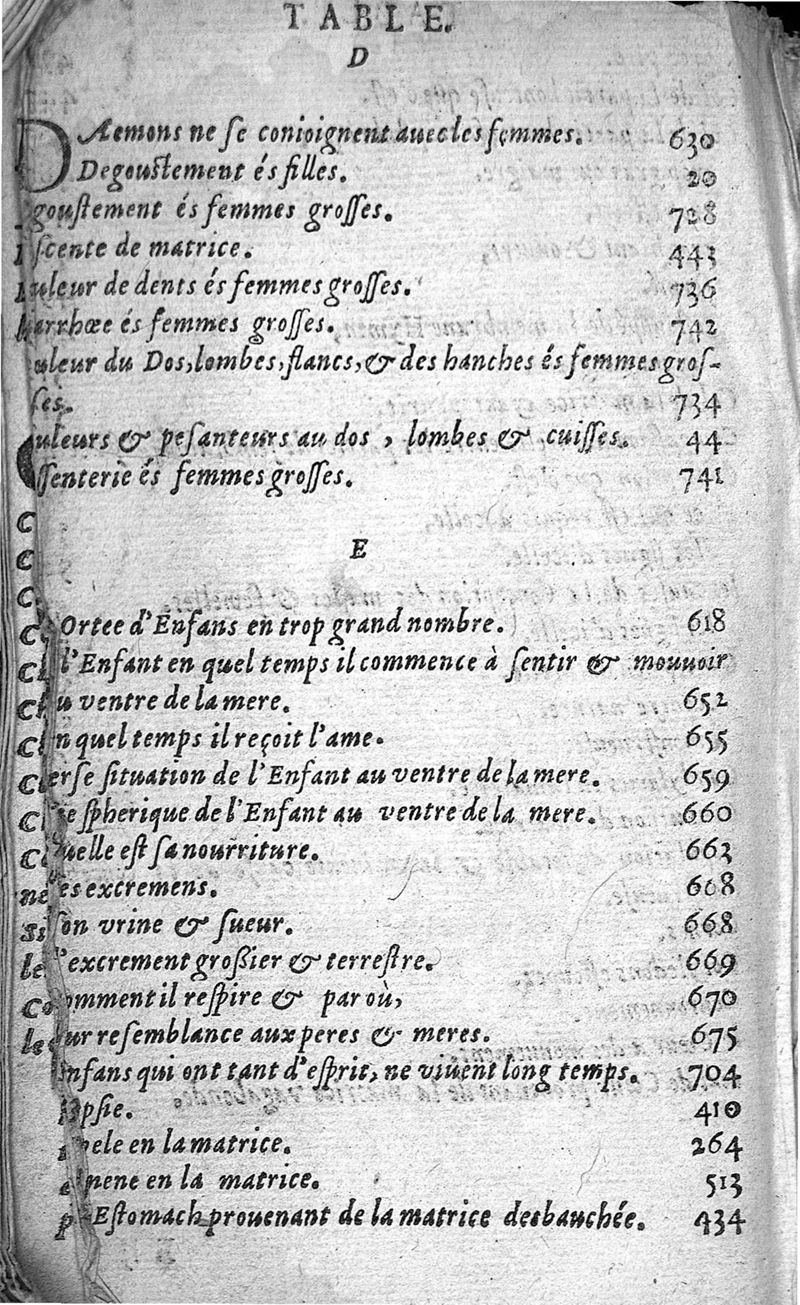 TABLE.
D
DAemons ne se conioignent auec les femmes. 630
Degoustement és filles. 20
goustement és femmes grosses. 728
scente de matrice. 443
uleur de dents és femmes grosses. 736
iarrhœe és femmes grosses. 742
uleur du Dos, lombes, flancs, & des hanches és femmes gros-
ses. 734
uleurs & pesanteurs au dos, lombes & cuisses. 44
ssenterie és femmes grosses. 741
E
Ortee d'Enfans en trop grand nombre. 618
l'Enfant en quel temps il commence à sentir & mouuoir
u ventre de la mere. 652
n quel temps il reçoit l'ame. 655
erse situation de l'Enfant au ventre de la mere. 659
e spherique de l'Enfant au ventre de la mere. 660
uelle est sa nourriture. 663
es excremens. 668
son vrine & sueur. 668
l'excrement grossier & terrestre. 669
omment il respire & par où, 670
ur resemblance aux peres & meres. 675
nfans qui ont tant d'esprit, ne viuent long temps. 704
psie. 410
pele en la matrice. 264
nene en la matrice. 513
Estomach prouenant de la matrice desbauchée. 434